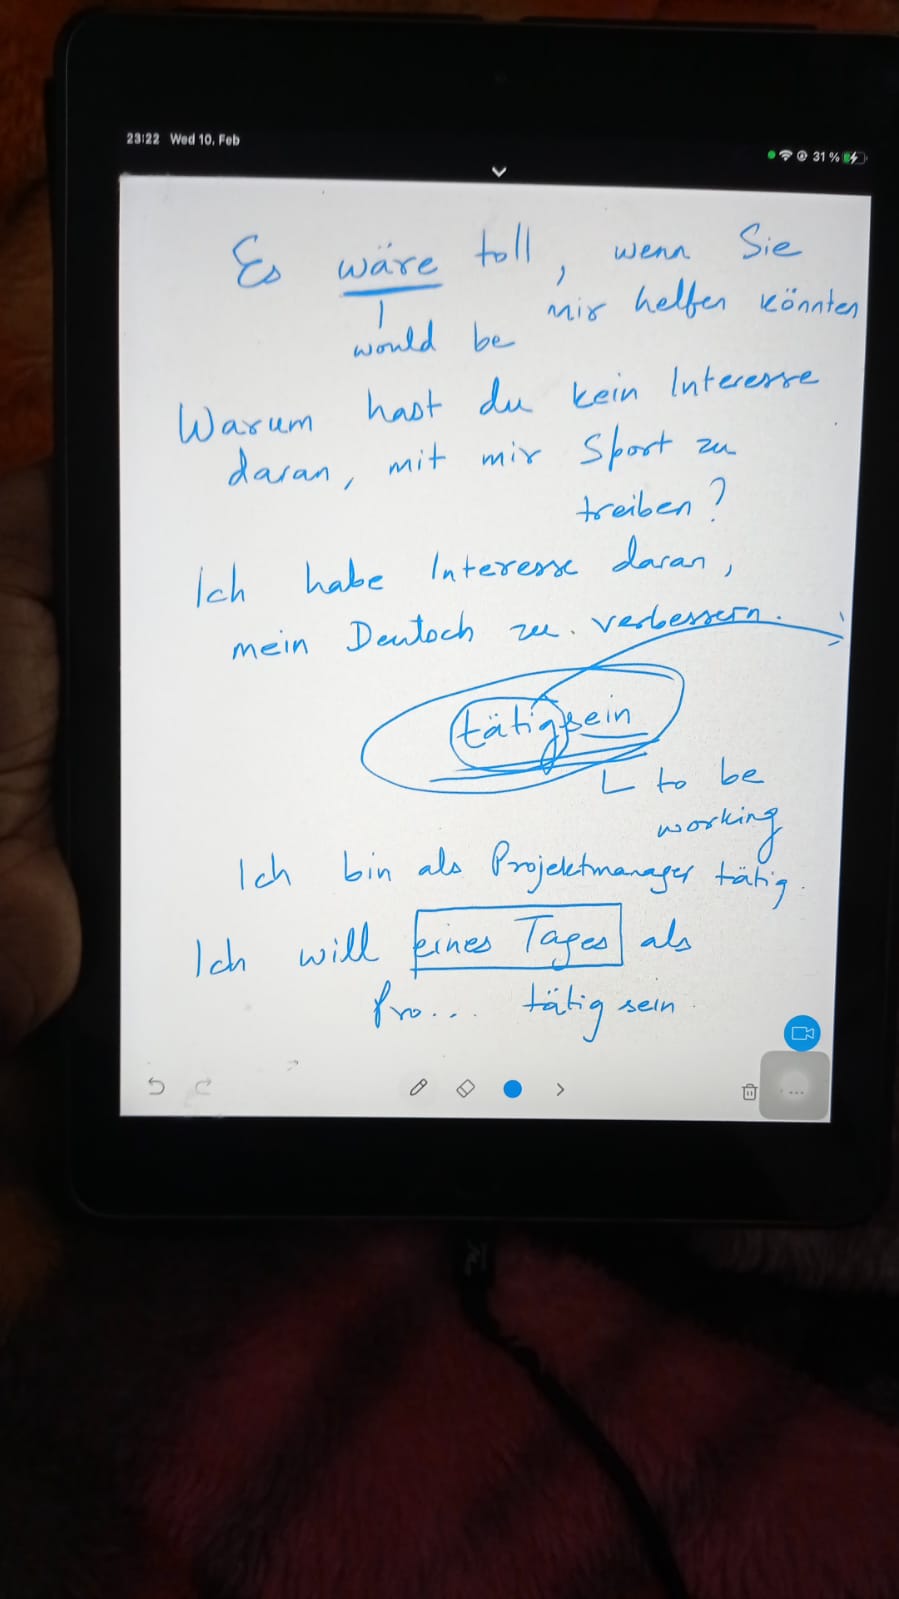 23:22 Wed 10. Feb
31 %
Es wäre toll, wenn Sie
mir helfen könnten
would be
Warum hast du kein Interesse
daran, mit mir Sport zu
treiben?
Ich habe Interesse daran,
mein Deutsch zu verbessern.
tätig sein
to be
working
Ich bin als Projektmanager tätig.
Ich will eines Tages als
Pro... tätig sein